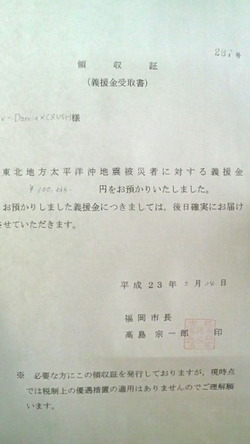 領収証
(義援金受取書)
様
東北地方太平洋沖地震被災者に対する義援金
円をお預かりいたしました。
お預かりしました義援金につきましては、後日確実にお届け
させていただきます。
平成23年 月 日
福岡市長
高島 宗一郎 印
※ 必要な方にこの領収証を発行しておりますが、現時点
では税制上の優遇措置の適用はありませんのでご理解願
います。